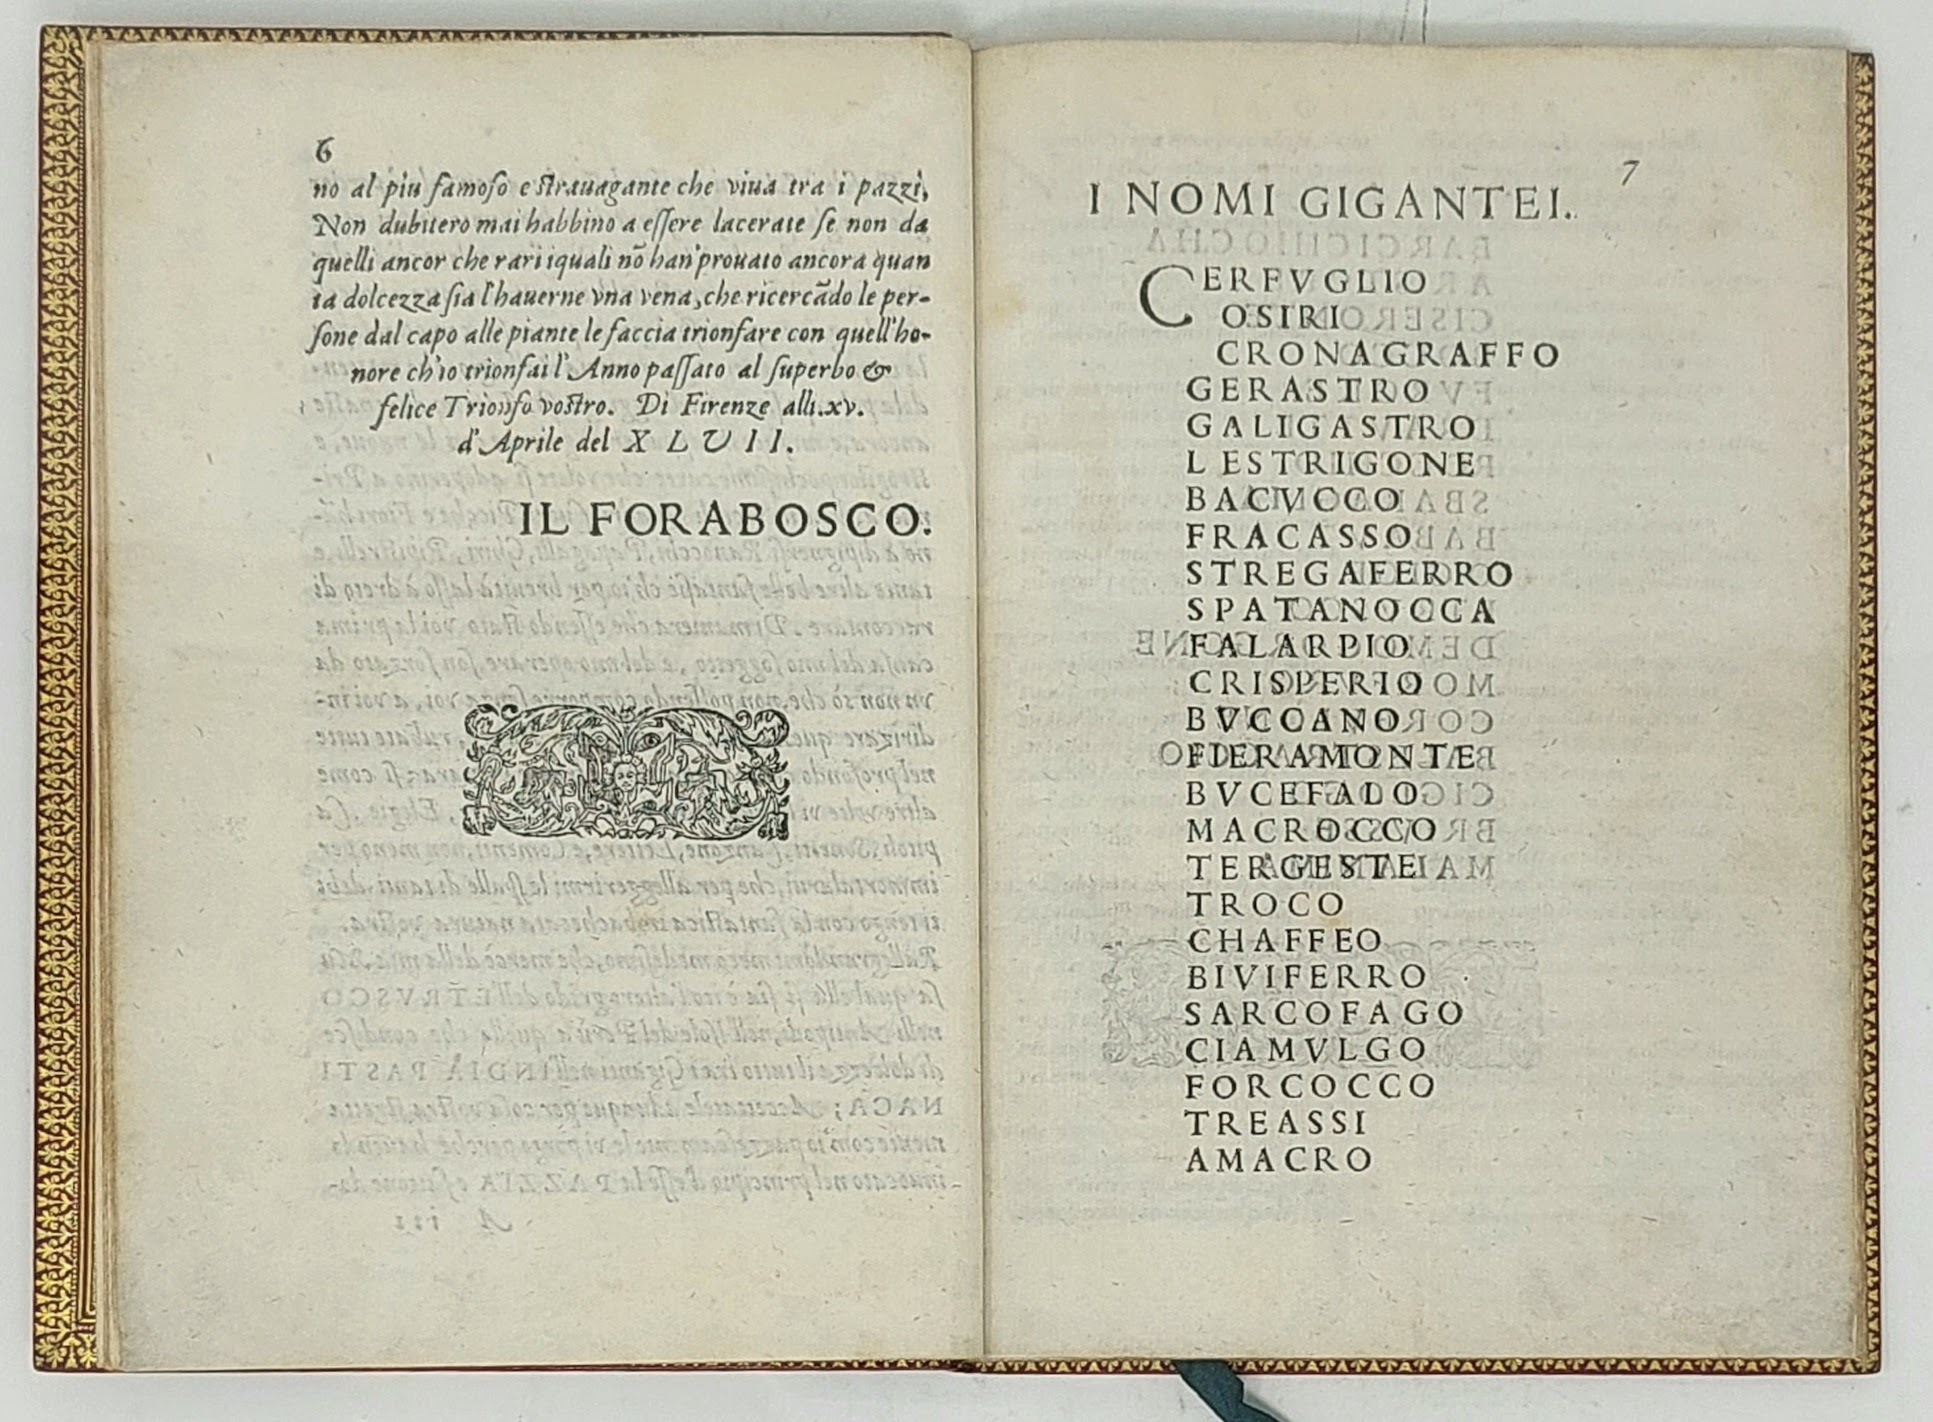 6
no al piu famoso e strauagante che viua tra i pazzi,
Non dubitero mai habbino a essere lacerate se non da
quelli ancor che rari iquali nõ han' prouato ancora quan
ta dolcezza sia l'hauerne vna vena, che ricercãdo le per-
sone dal capo alle piante le faccia trionfare con quell'ho-
nore ch'io trionfai l'Anno passato al superbo &
felice Trionfo vostro. Di Firenze alli.xv.
d'Aprile del XLVII.
IL FORABOSCO.
7
I NOMI GIGANTEI.
CERFVGLIO
OSIRI
CRONAGRAFFO
GERASTRO
GALIGASTRO
LESTRIGONE
BACVCCO
FRACASSO
STREGAFERRO
SPATANOCCA
FALARPIO
CRISPERIO
BVCCANO
FIERAMONTE
BVCEFALO
MACROCCO
TERGESTE
TROCO
CHAFFEO
BIVIFERRO
SARCOFAGO
CIAMVLGO
FORCOCCO
TREASSI
AMACRO